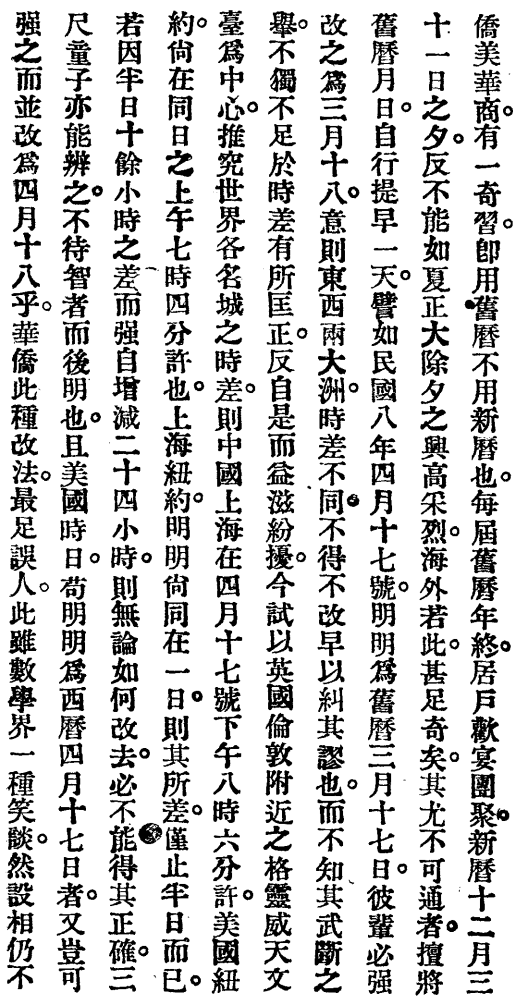 僑美華商。有一奇習。卽用舊曆不用新曆也。每屆舊曆年終。居戶歡宴團聚。新曆十二月三
十一日之夕。反不能如夏正大除夕之興高釆烈。海外若此。甚足奇矣。其尤不可通者。擅將
舊曆月日。自行提早一天。譬如民國八年四月十七號。明明爲舊曆三月十七日。彼輩必强
改之爲三月十八。意則東西兩大洲。時差不同。不得不改早以糾其謬也。而不知其武斷之
舉。不獨不足於時差有所匡正。反自是而益滋紛擾。今試以英國倫敦附近之格靈威天文
臺爲中心。推究世界各名城之時差。則中國上海在四月十七號下午八時六分許。美國紐
約。尙在同日之上午七時四分許也。上海紐約。明明尙同在一日。則其所差。僅止半日而已。
若因半日十餘小時之差。而强自增減二十四小時。則無論如何改去。必不能得其正確。三
尺童子亦能辨之。不待智者而後明也。且美國時日。苟明明爲西曆四月十七日者。又豈可
强之而並改爲四月十八乎。華僑此種改法。最足誤人。此雖數學界一種笑談。然設相仍不